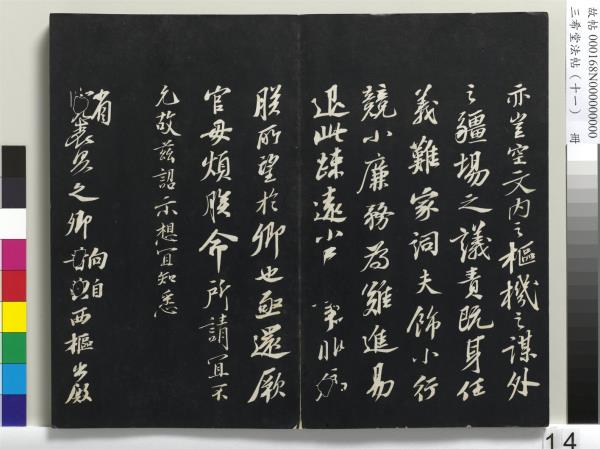 亦豈空文内之樞機之謀外
之疆場之議責既身任
義難家詞夫飾小行
競小廉務為難進易
退此疎遠小臣
朕所望於卿也亟還厥
官毋煩朕命所請宜不
允故茲詔示想宜知悉
省
表具之卿
向自西樞出殿
故帖 000168N000000000
三希堂法帖（十一） 冊
14